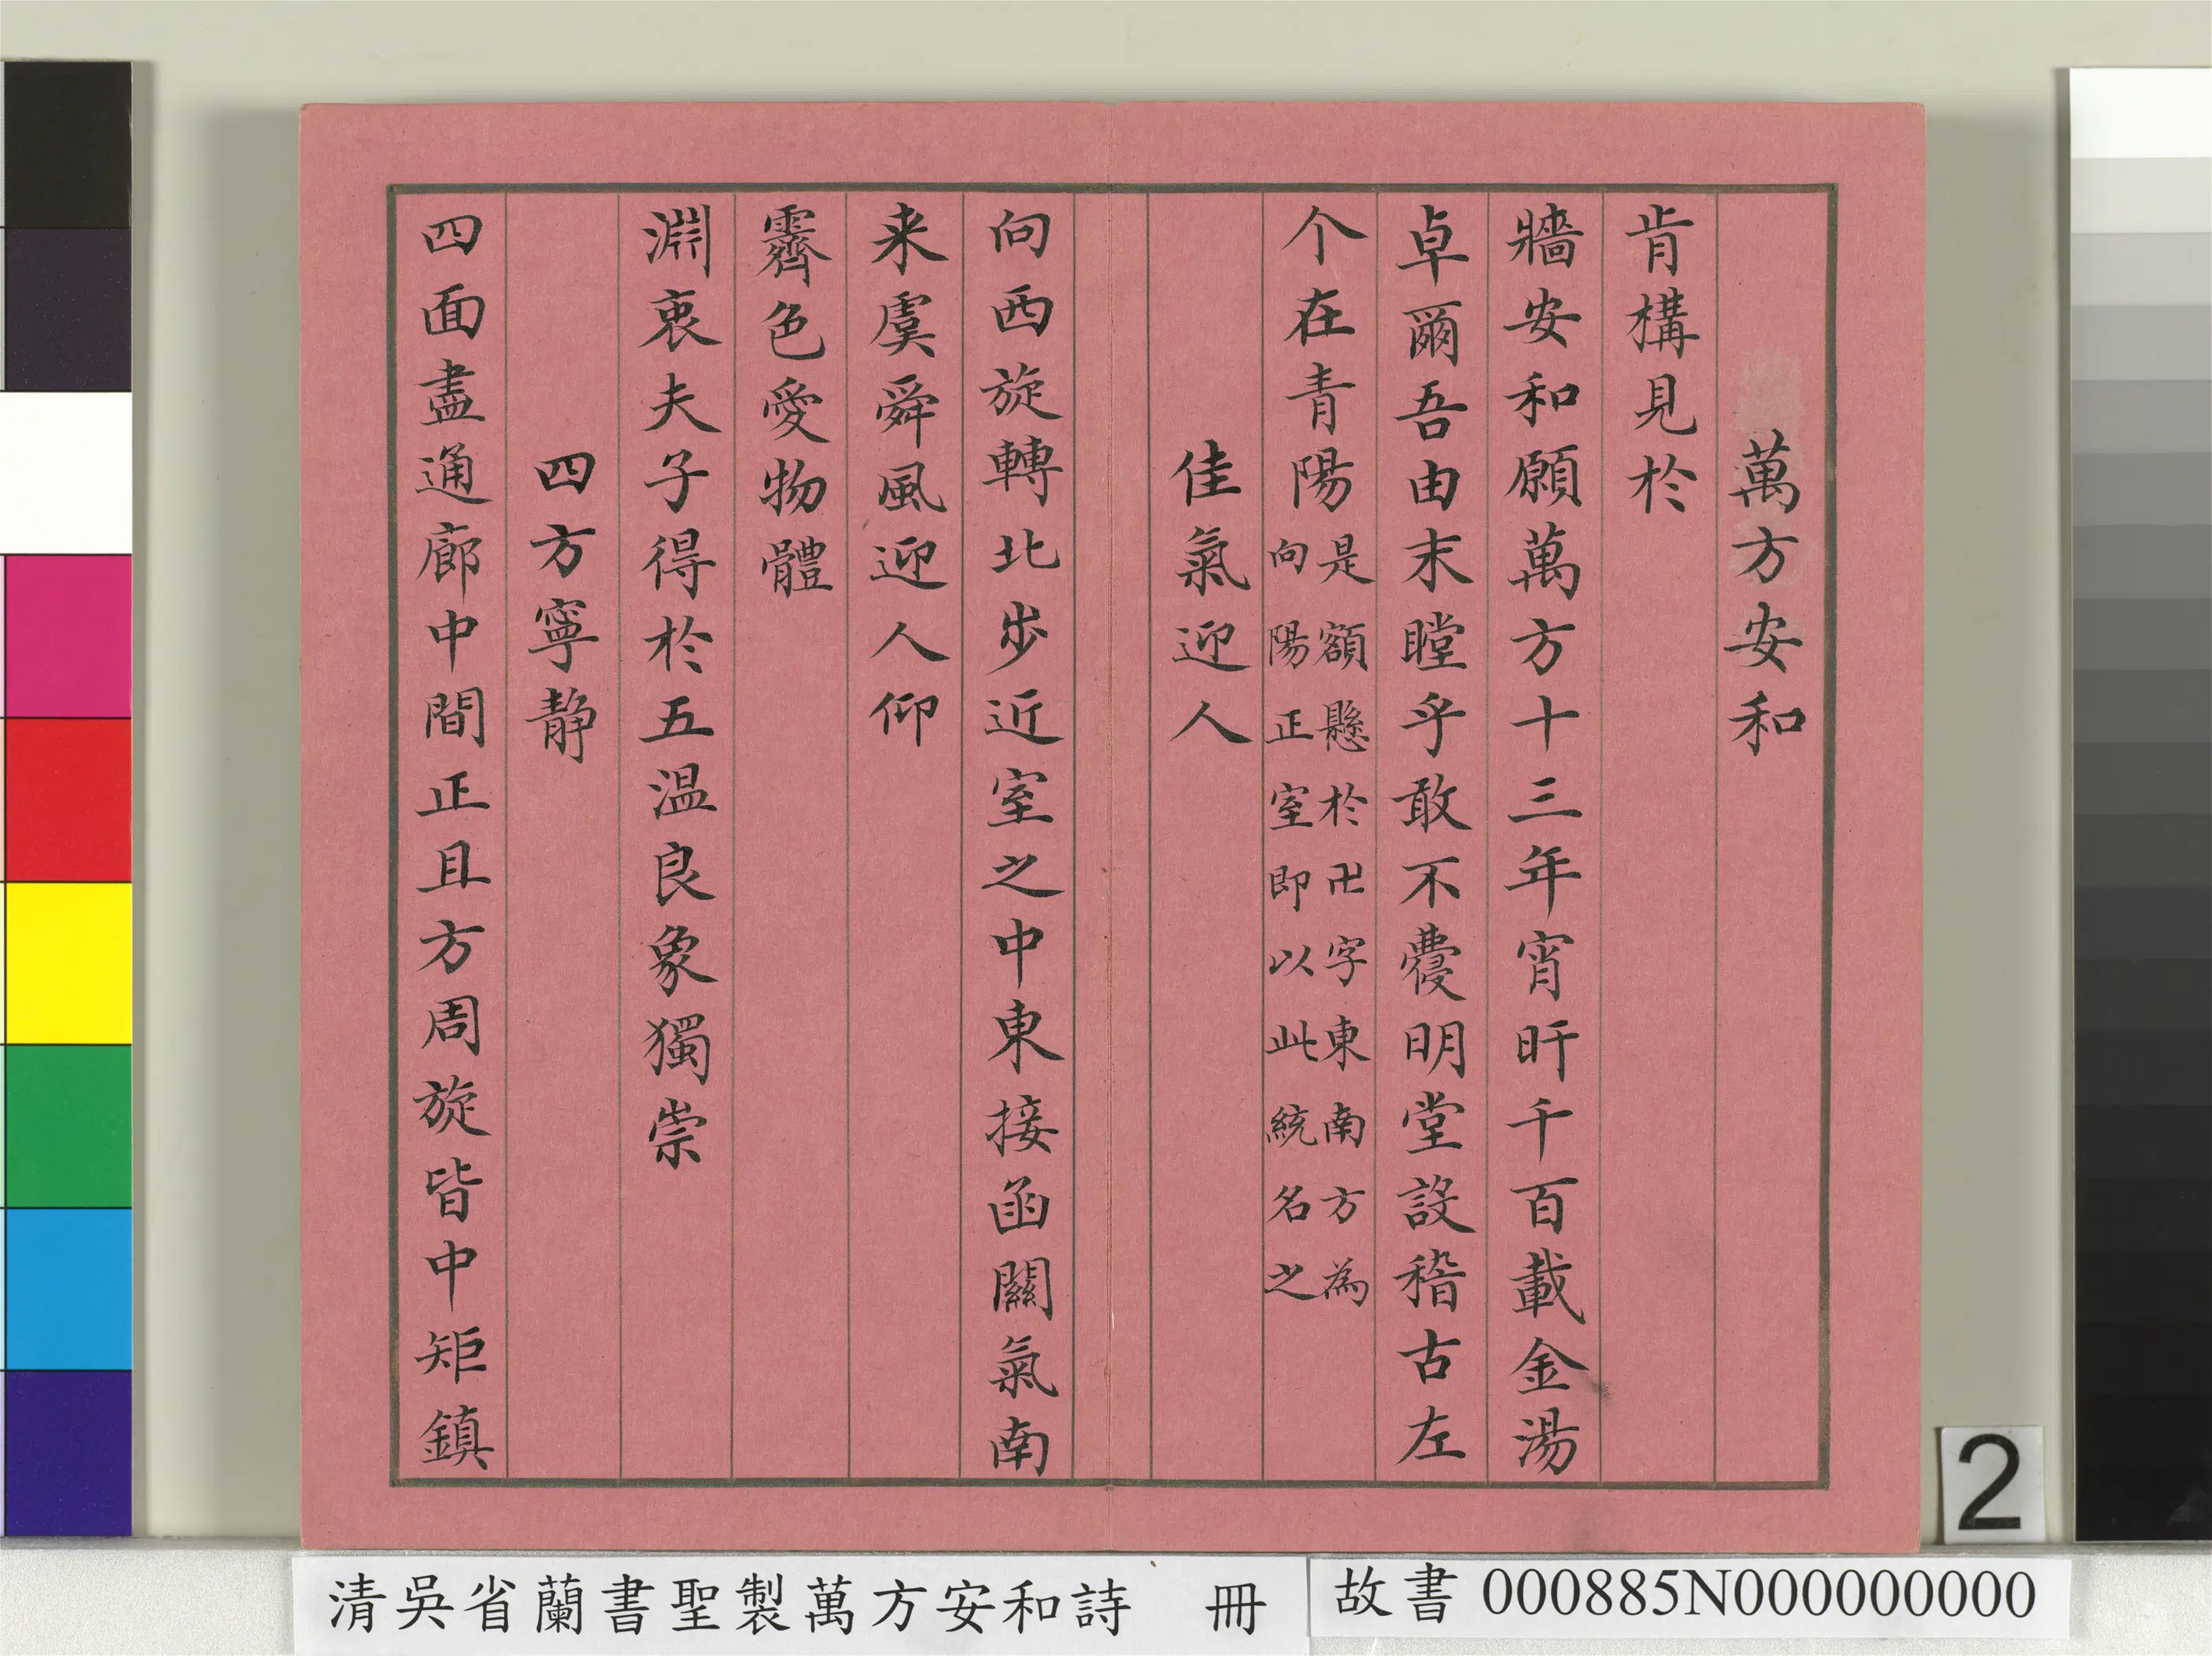 萬方安和
肯構見於
牆安和願萬方十三年宵旰千百載金湯
卓爾吾由末瞠乎敢不虁明堂設稽古左
个在青陽是額懸於卍字東南方為
向陽正室即以此統名之
佳氣迎人
向西旋轉北步近室之中東接函關氣南
来虞舜風迎人仰
霽色愛物體
淵衷夫子得於五温良象獨崇
四方寧静
四面盡通廊中間正且方周旋皆中矩鎮
2
清吳省蘭書聖製萬方安和詩 冊
故書000885N000000000